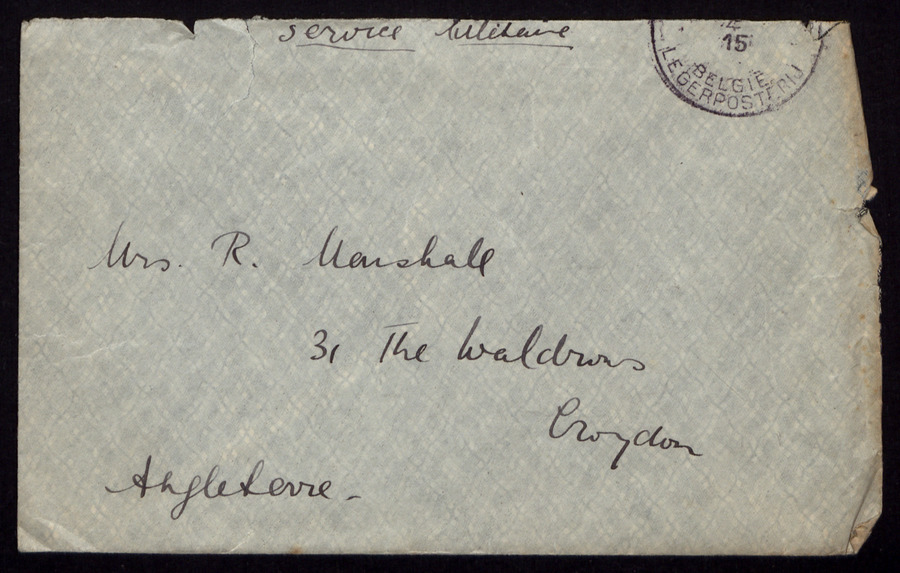 Service Militaire
15
BELGIE
LEGERPOSTERIJ
Mrs. R. Marshall
31 The Waldrons
Croydon
Angleterre -